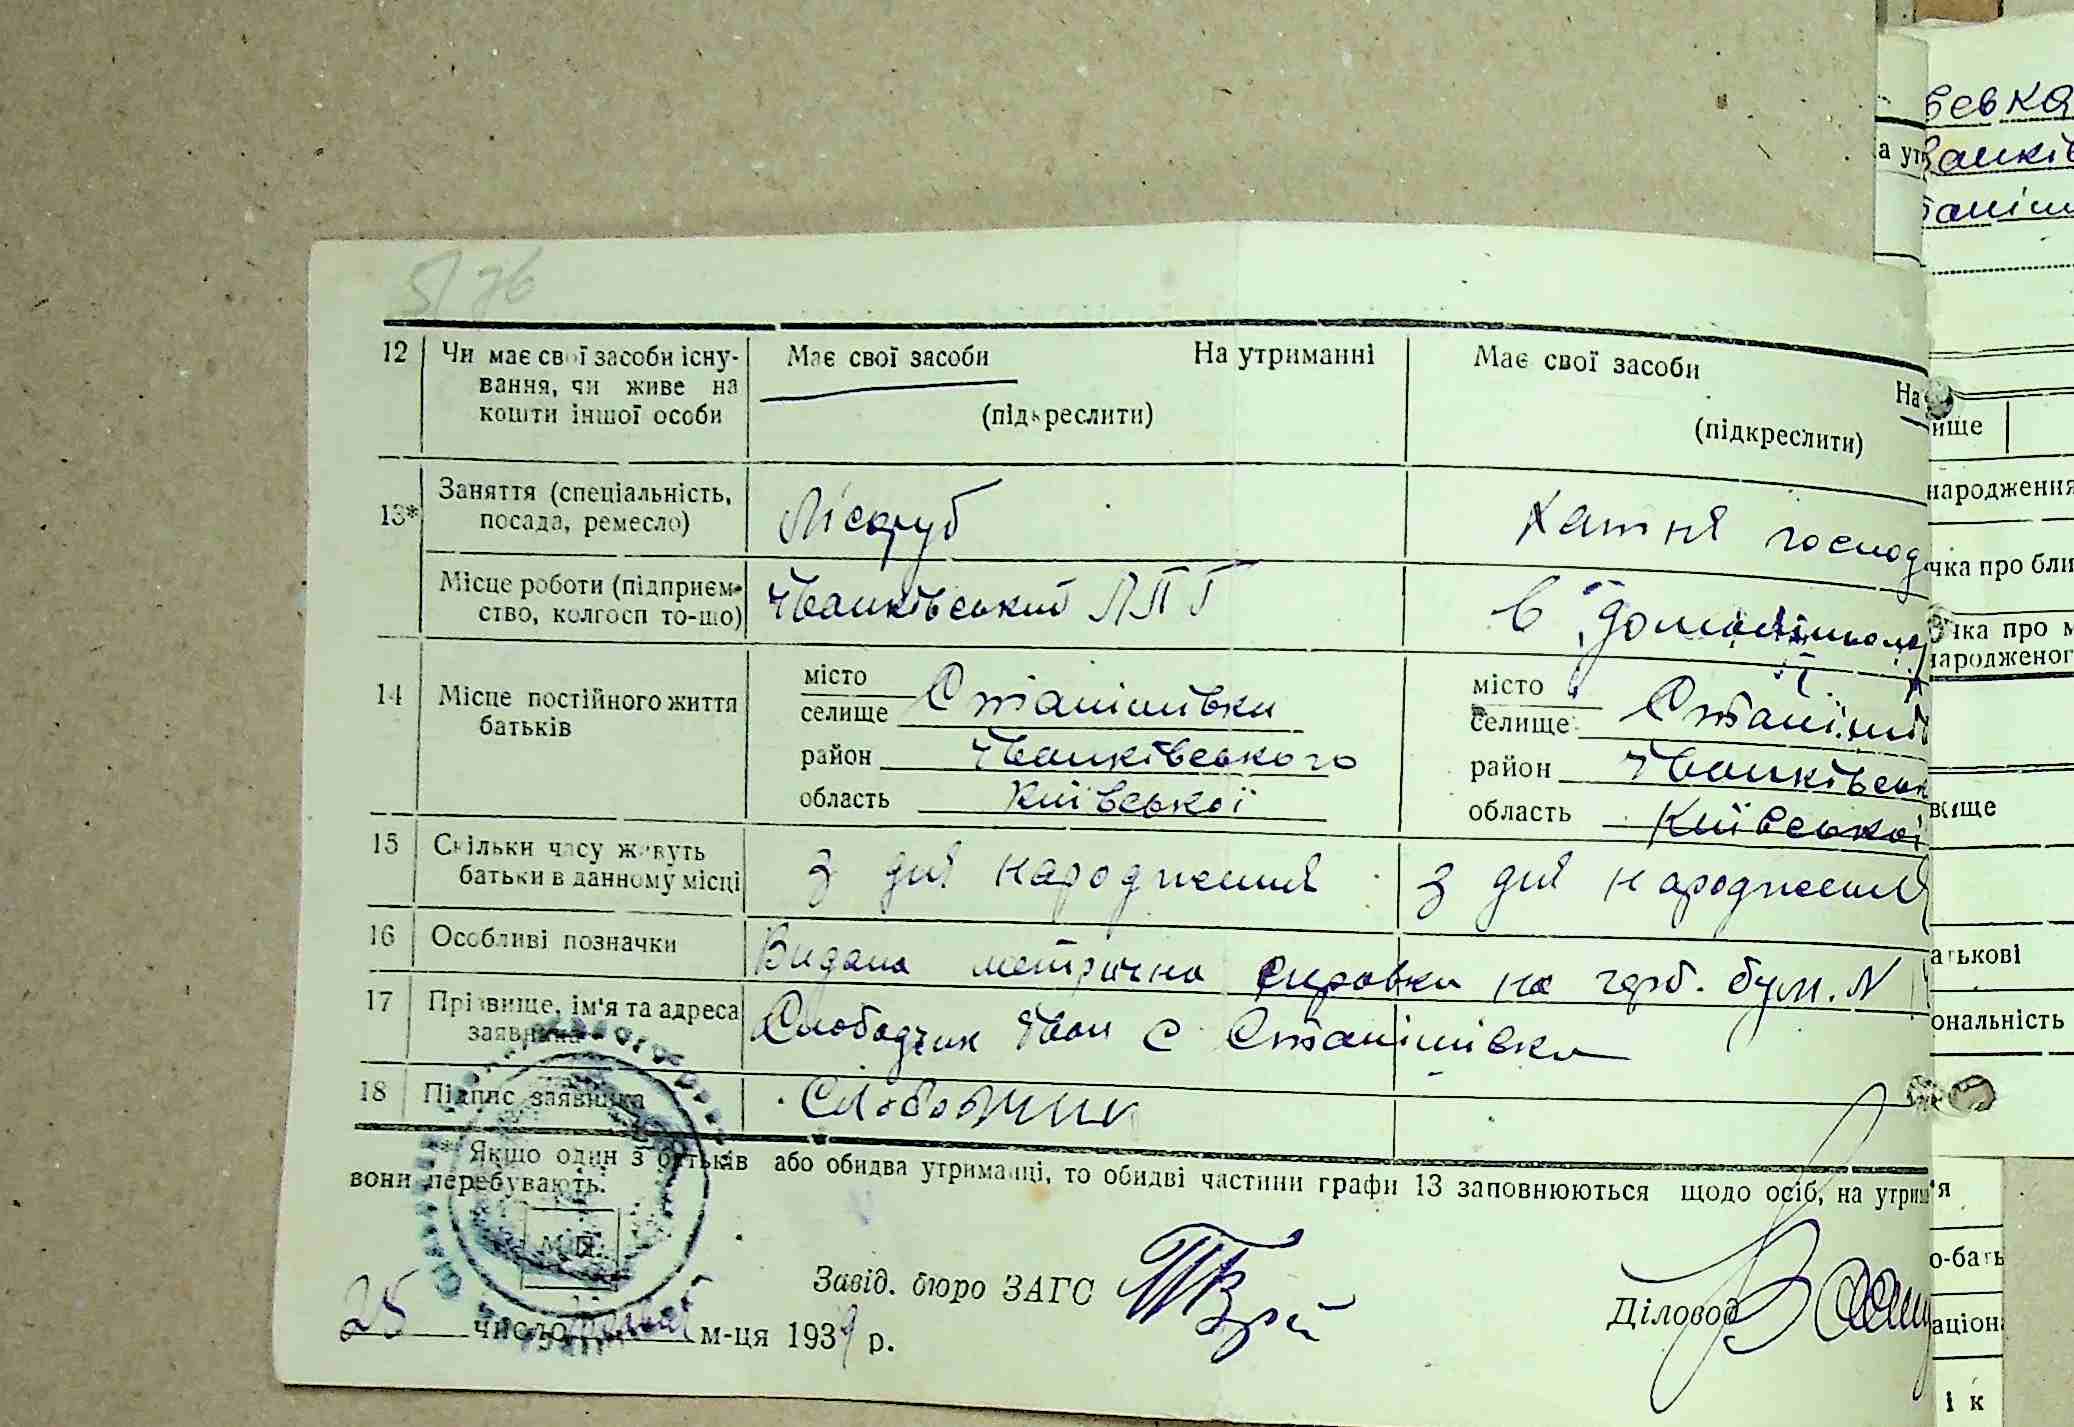 12 Чи має свої засоби існу- Має свої засоби На утриманні Має свої засоби На
вання, чи живе на
кошти іншої особи (підкреслити) (підкреслити)
13* Заняття (спеціальність, Лісоруб Хатня господ
посада, ремесло)
Місце роботи (підприєм- Іванківський ЛПГ в
ство, колгосп то-що)
14 Місце постійного життя місто місто
батьків селище Станішівки селище Станішів
район Іванківського район Іванківськ
область Київської область Київської
15 Скільки часу живуть з дня народження з дня народження
батьки в данному місці
16 Особливі позначки Видана метрична справка на герб. бум. N
17 Прізвище, ім'я та адреса Слободчик Іван С Станішівки
заявника
18 Підпис заявника Слободчик
* Якщо один з батьків або обидва утриманці, то обидві частини графи 13 заповнюються щодо осіб, на утрим
вони перебувають.
М. П.
Завід. бюро ЗАГС
Діловод
25 число м-ця 1939 р.
а ут
ище
народження
чка про бли
чка про м
народженог
вище
атькові
ональність
'я
о-бать
аціон
і к